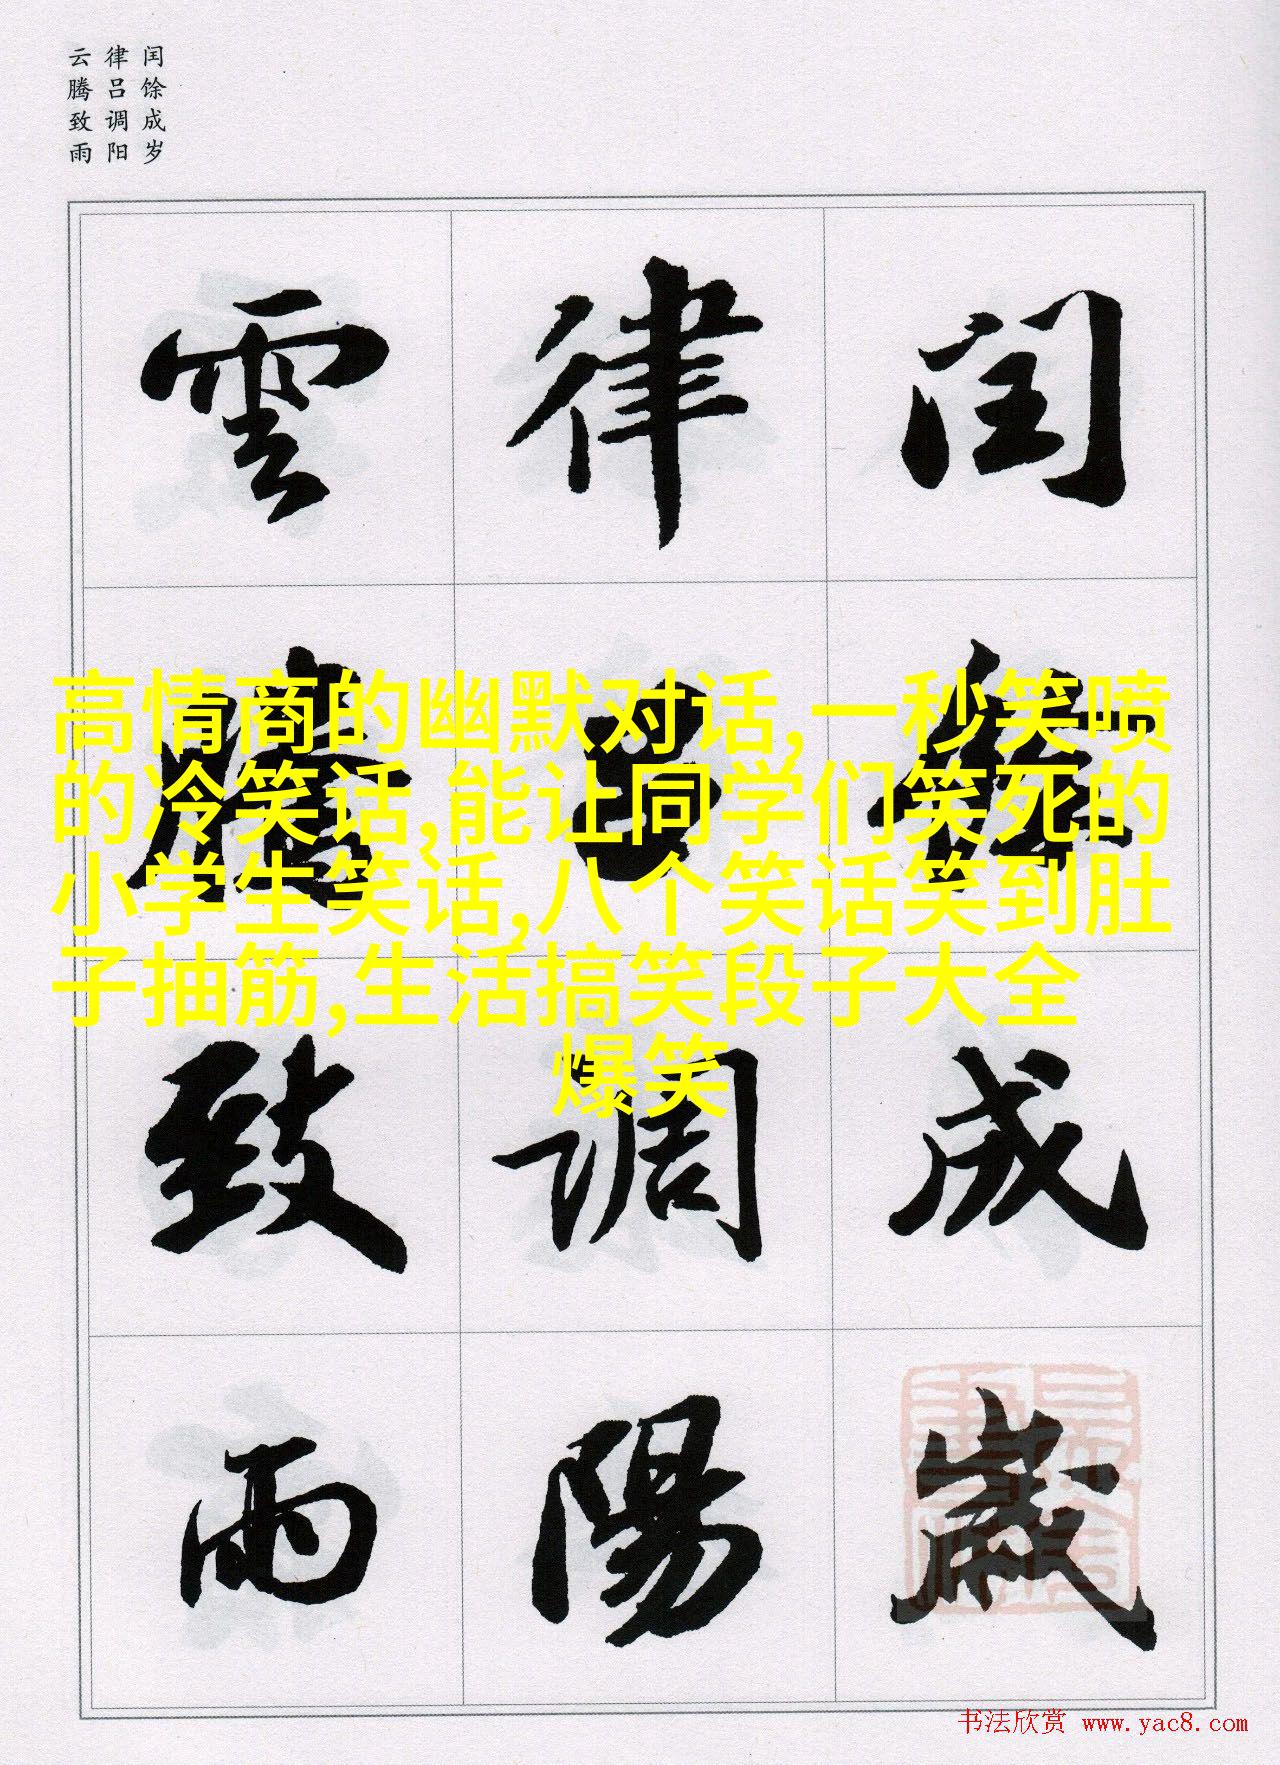 闰馀成岁
律吕调阳
云腾致雨
閏餘成歲
律呂調陽
雲騰致雨
高情商的幽默对话,一秒笑喷
的冷笑话,能让同学们笑死的
小学生笑话,八个笑话笑到肚
子抽筋,生活搞笑段子大全
爆笑
书法欣赏 www.yac8.com